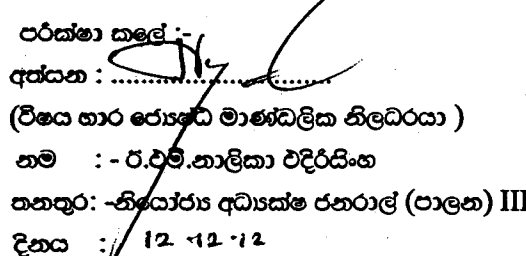 පරීක්ෂා කලේ :-
අත්සන : ....................................
(විෂය භාර ජ්‍යෙෂ්ඨ මාණ්ඩලික නිලධරයා )
නම : - ඊ.එම්.නාලිකා එදිරිසිංහ
තනතුර: -නියෝජ්‍ය අධ්‍යක්ෂ ජනරාල් (පාලන) III
දිනය : 12 -12 -12